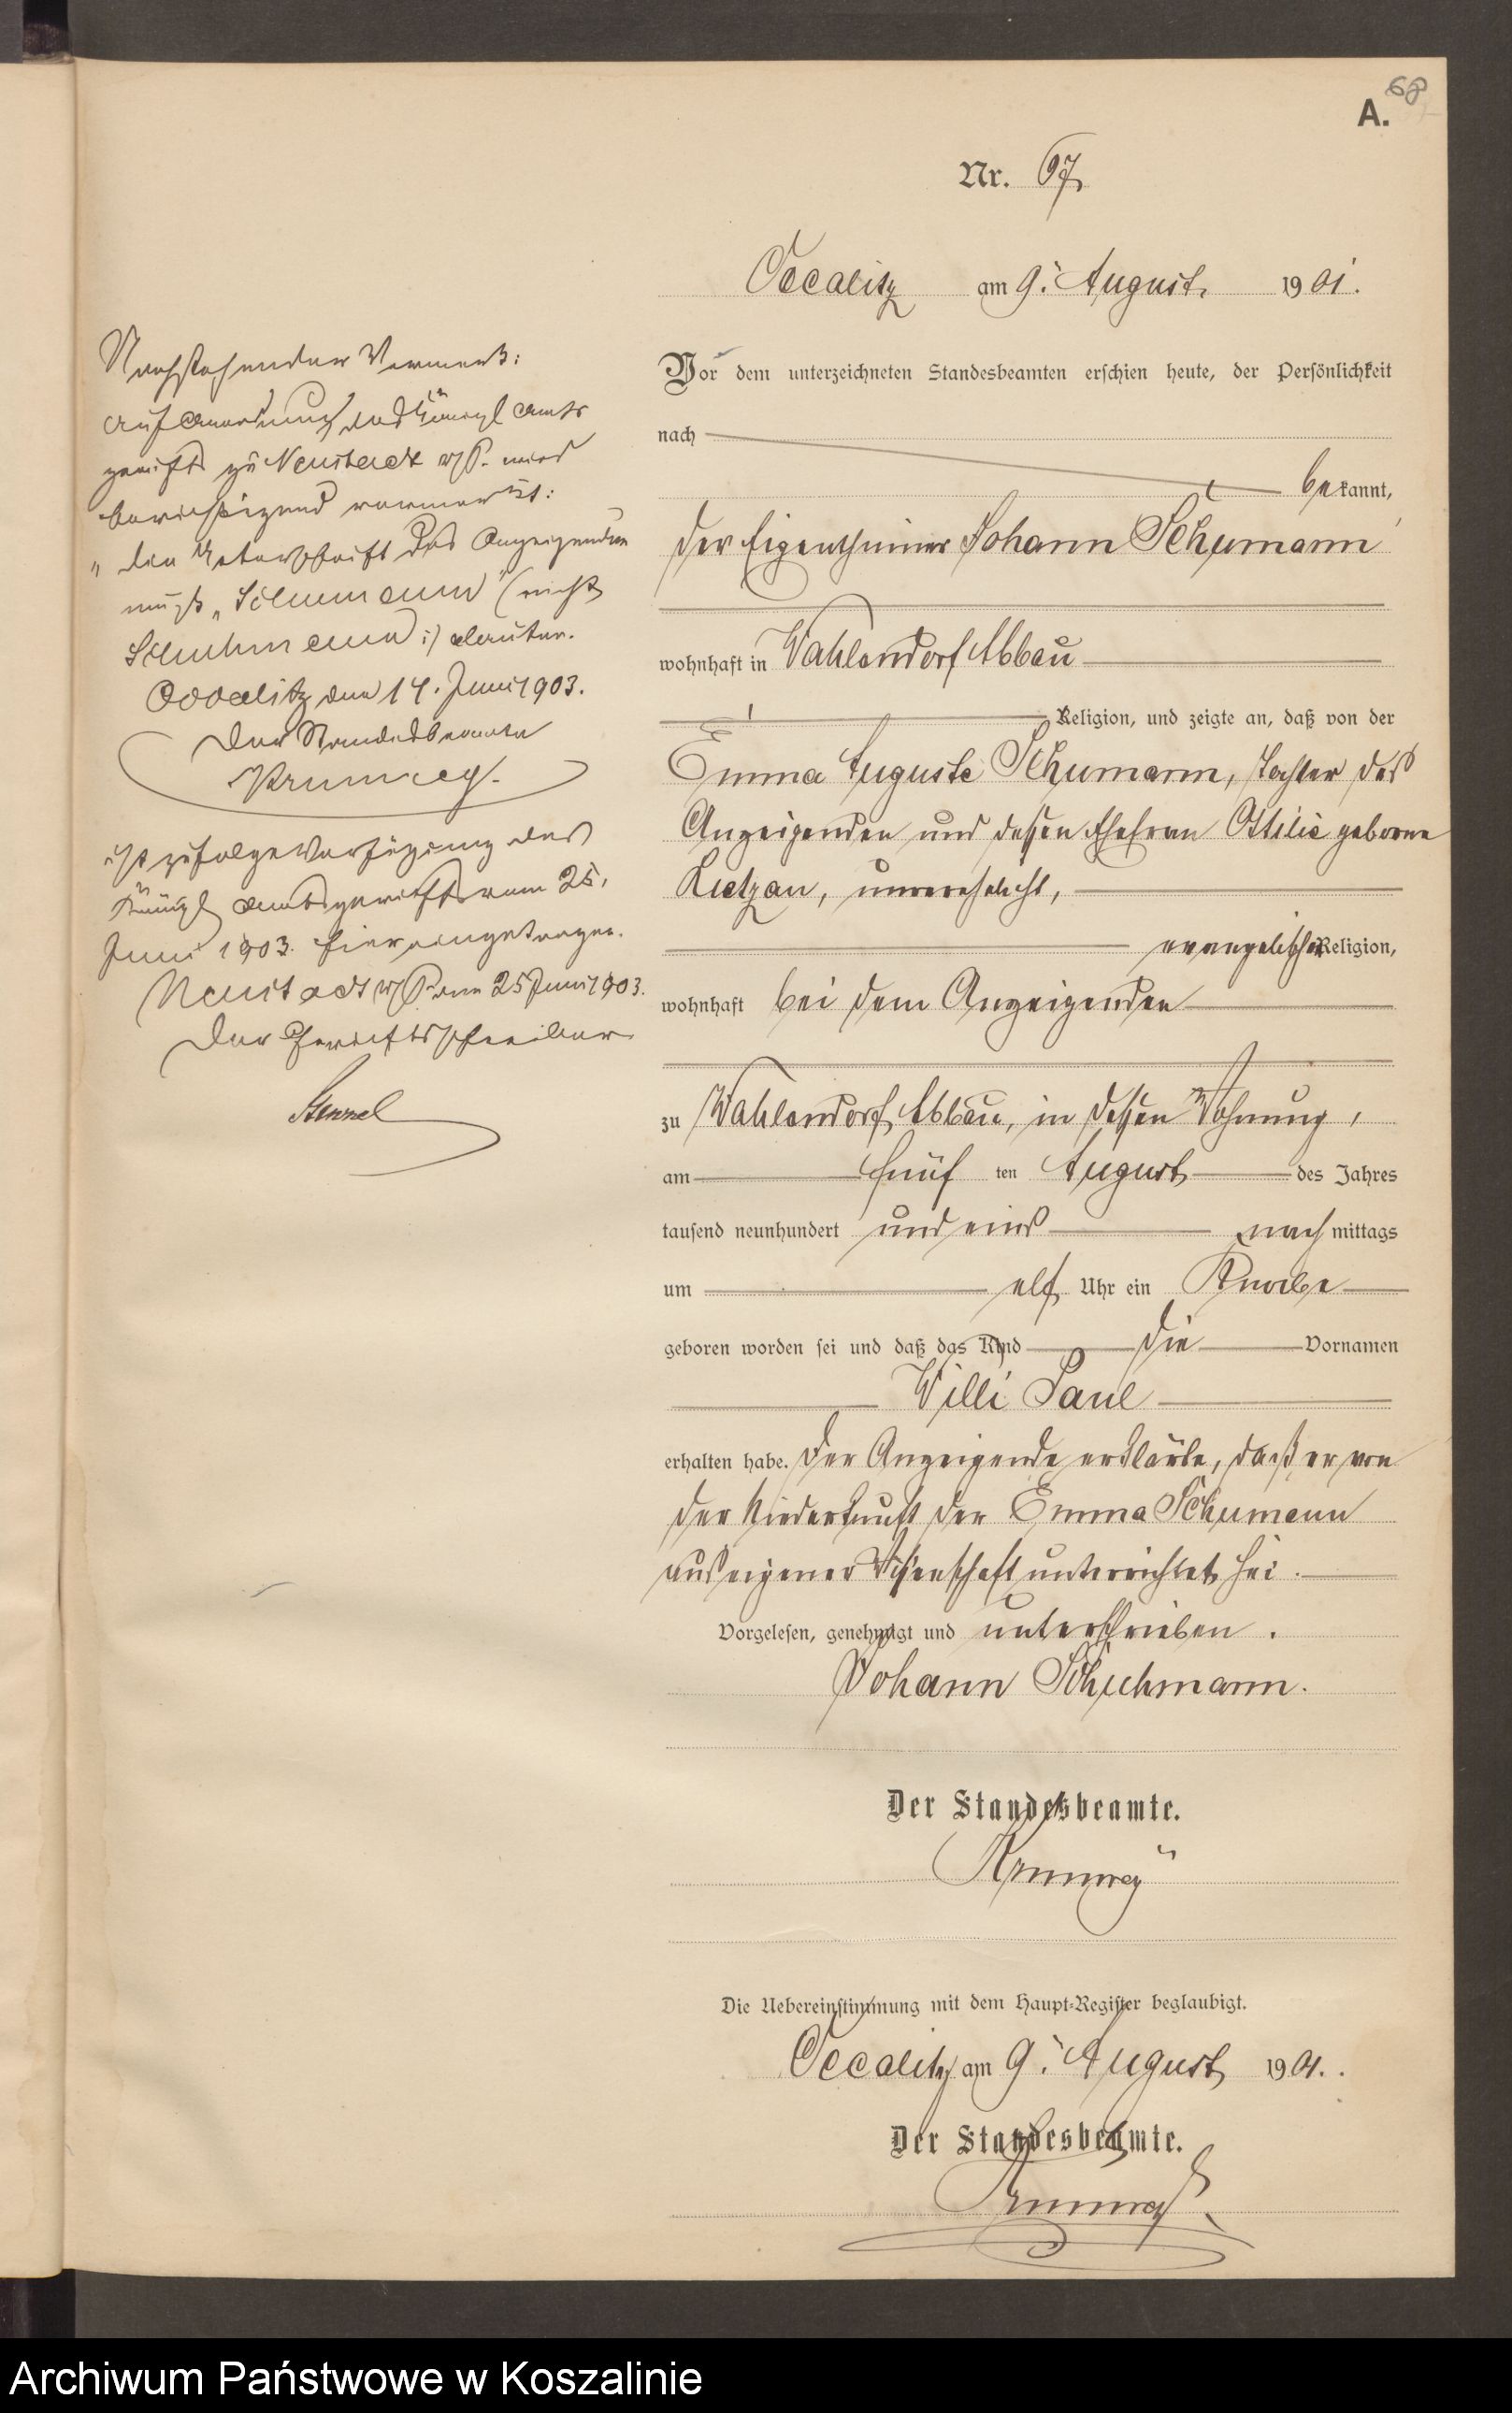 68
A.
Nr. 67
Occalitz am 9. August 1901.
Vor dem unterzeichneten Standesbeamten erschien heute, der Persönlichkeit
nach
bekannt,
der Eigenthümer Johann Schumann
wohnhaft in Wahlendorf Abbau
Religion, und zeigte an, daß von der
Emma Auguste Schumann, Tochter des
Anzeigenden und dessen Ehefrau Ottilie geborene
Lietzau, unverehelicht,
evangelischer Religion,
wohnhaft bei dem Anzeigenden
zu Wahlendorf Abbau, in dessen Wohnung,
am fünften August des Jahres
tausend neunhundert und eins nachmittags
um elf Uhr ein Knabe
geboren worden sei und daß das Kind die Vornamen
Willi Paul
erhalten habe. Der Anzeigende erklärte, daß er von
der Niederkunft der Emma Schumann
aus eigener Wissenschaft unterrichtet sei.
Vorgelesen, genehmigt und unterschrieben.
Johann Schuhmann.
Der Standesbeamte.
Die Uebereinstimmung mit dem Haupt-Register beglaubigt.
Occalitz am 9. August 1901.
Der Standesbeamte.
Nachstehender Vermerk:
Auf Anordnung des Königl Amts
gerichts zu Neustadt W/P. wird
berichtigend vermerkt:
"die Unterschrift des Anzeigenden
muß "Schumann" (nicht
Schuhmann:) lauten.
Occalitz den 14. Juni 1903.
Der Standesbeamte
ist zufolge Verfügung des
Königl Amtsgerichts vom 25.
Juni 1903. hier eingetragen.
Neustadt W/P den 25 Juni 1903.
Der Gerichtsschreiber
Stennel
Archiwum Państwowe w Koszalinie